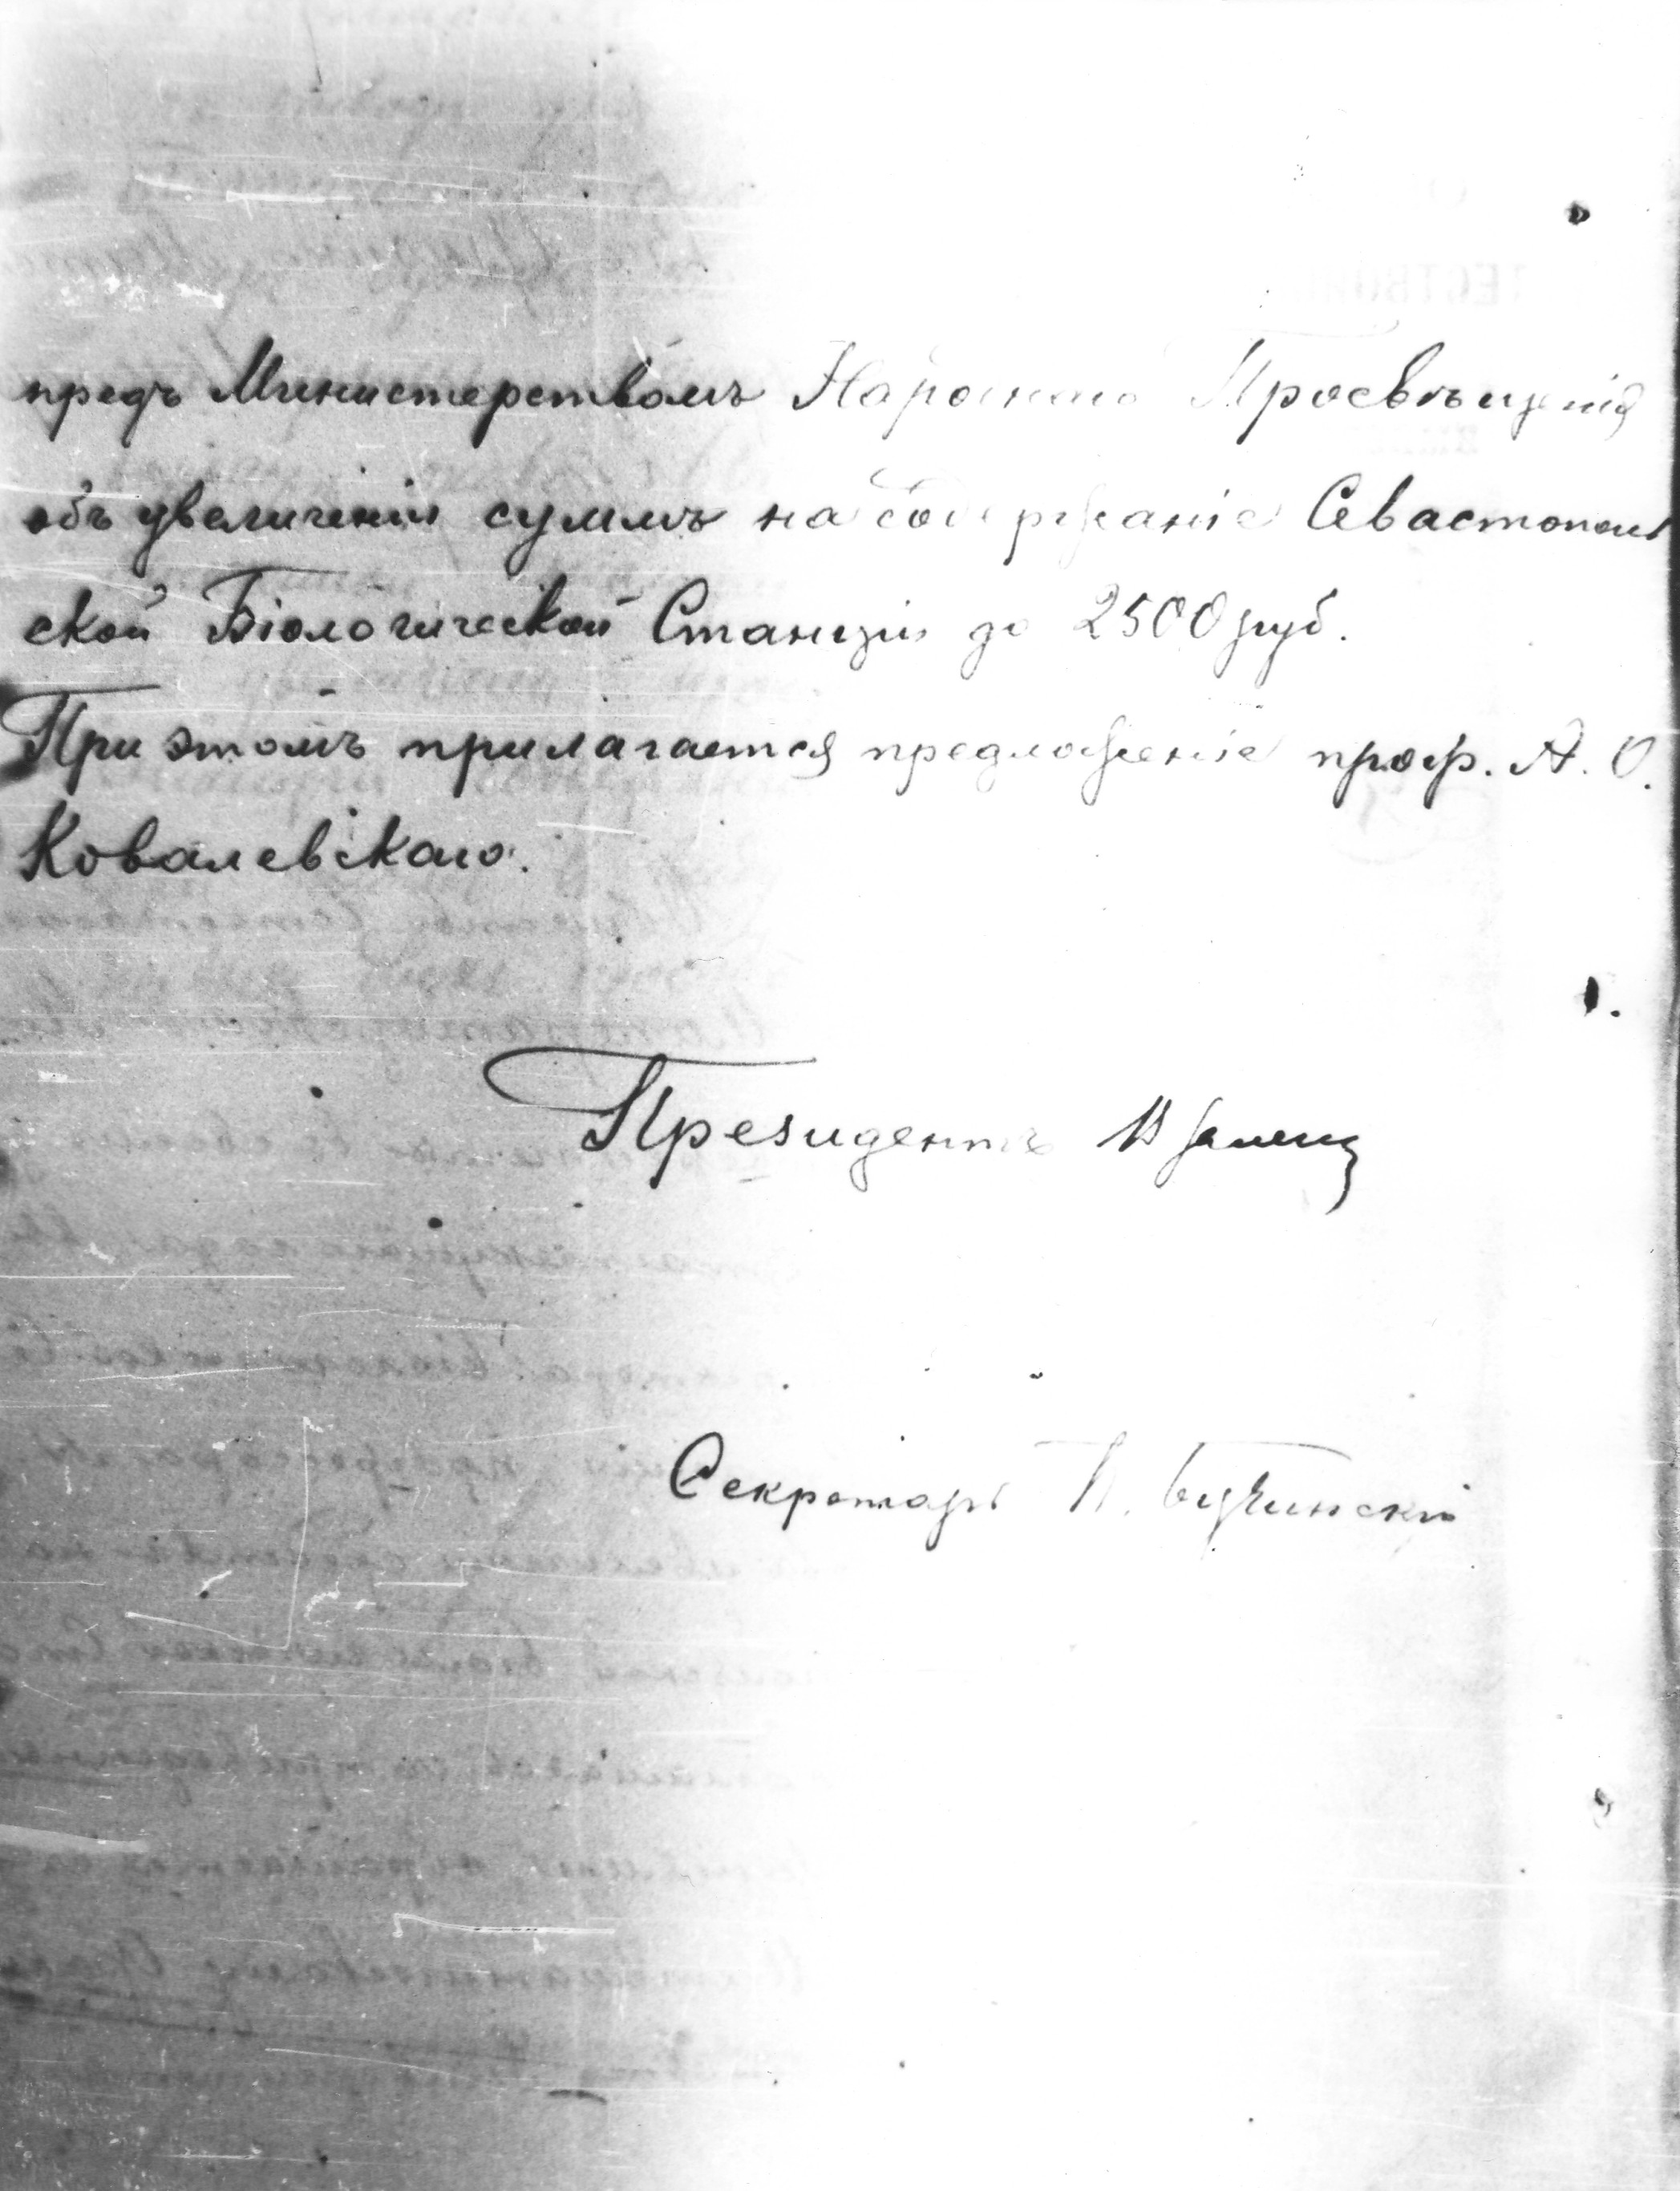 предъ Министерствомъ Народнаго Просвѣщенія
объ увеличеніи суммъ на содержаніе Севастополь
ской Біологической Станціи до 2500 руб.
При этомъ прилагается предложеніе проф. А. О.
Ковалевскаго.
Президентъ
Секретарь П. Бучинскій